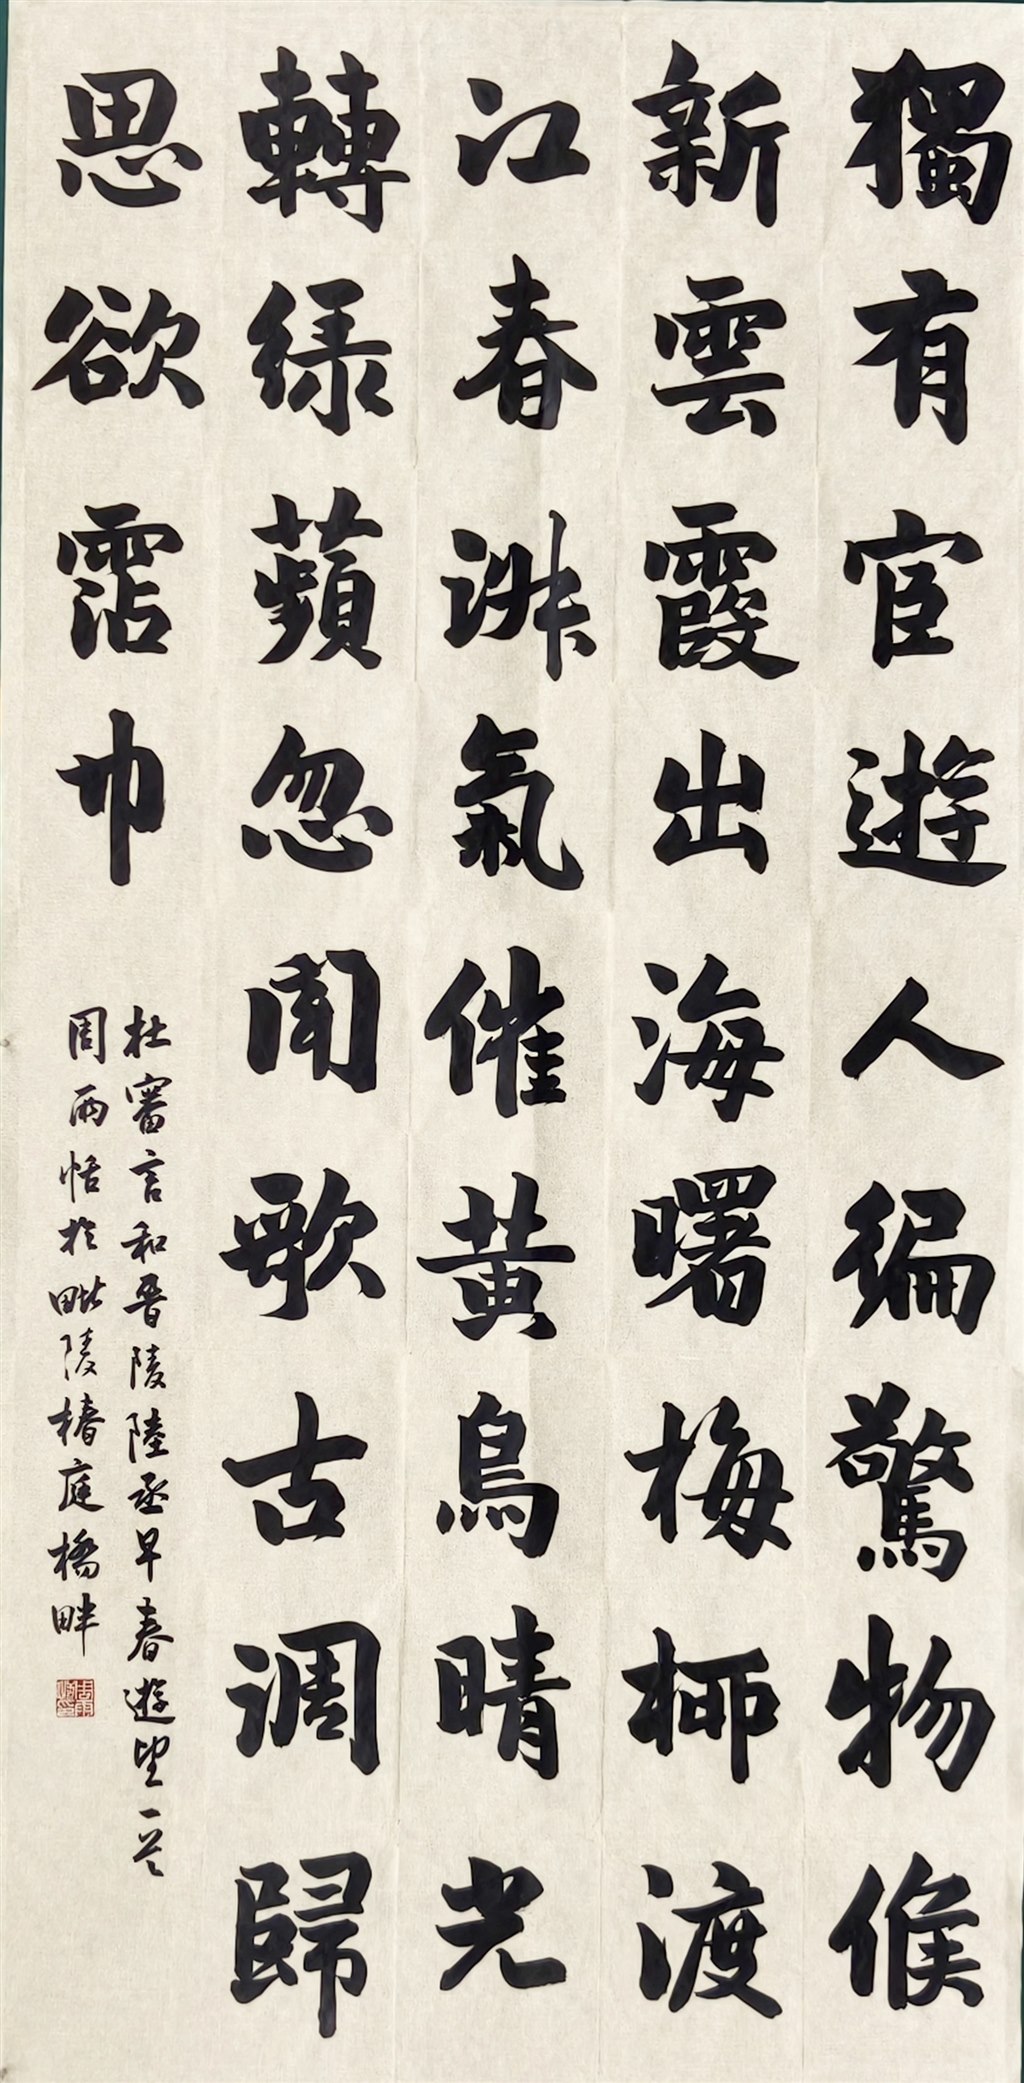 獨有宦遊人編驚物候
新雲霞出海曙梅柳渡
江春淑氣催黃鳥晴光
轉緑蘋忽聞歌古調歸
思欲霑巾
杜審言和晉陵陸丞早春遊望一首
周雨恬於毗陵椿庭橋畔